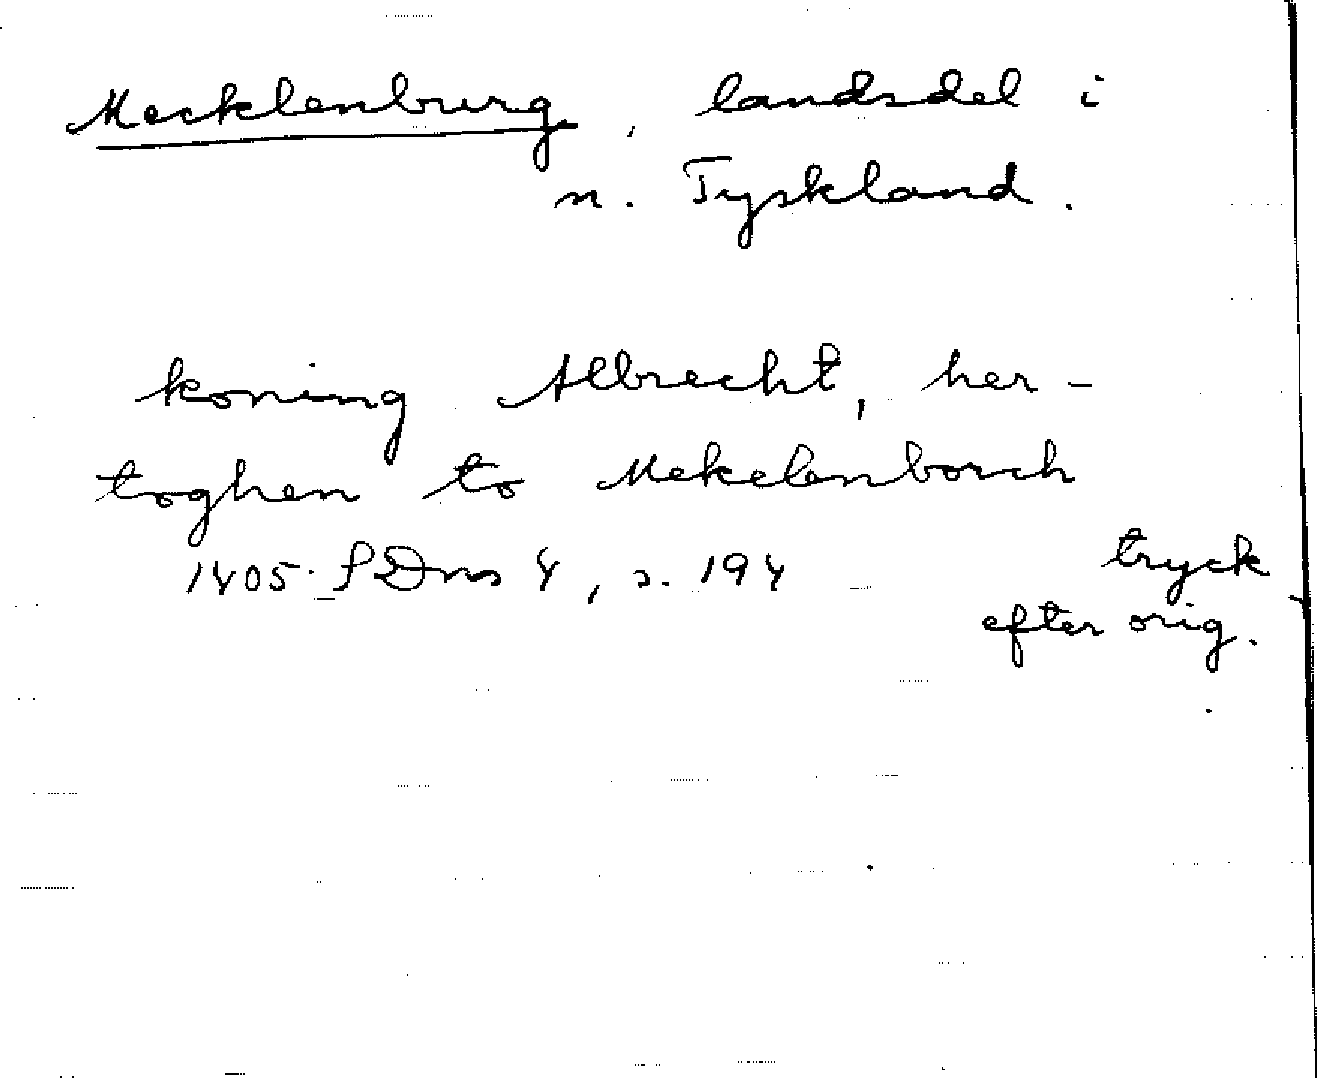 Mecklenburg, landsdel i
n. Tyskland.
koning Albrecht, her-
toghen to Mekelenborch
1405. SDns 4, s. 194 tryck
efter orig.